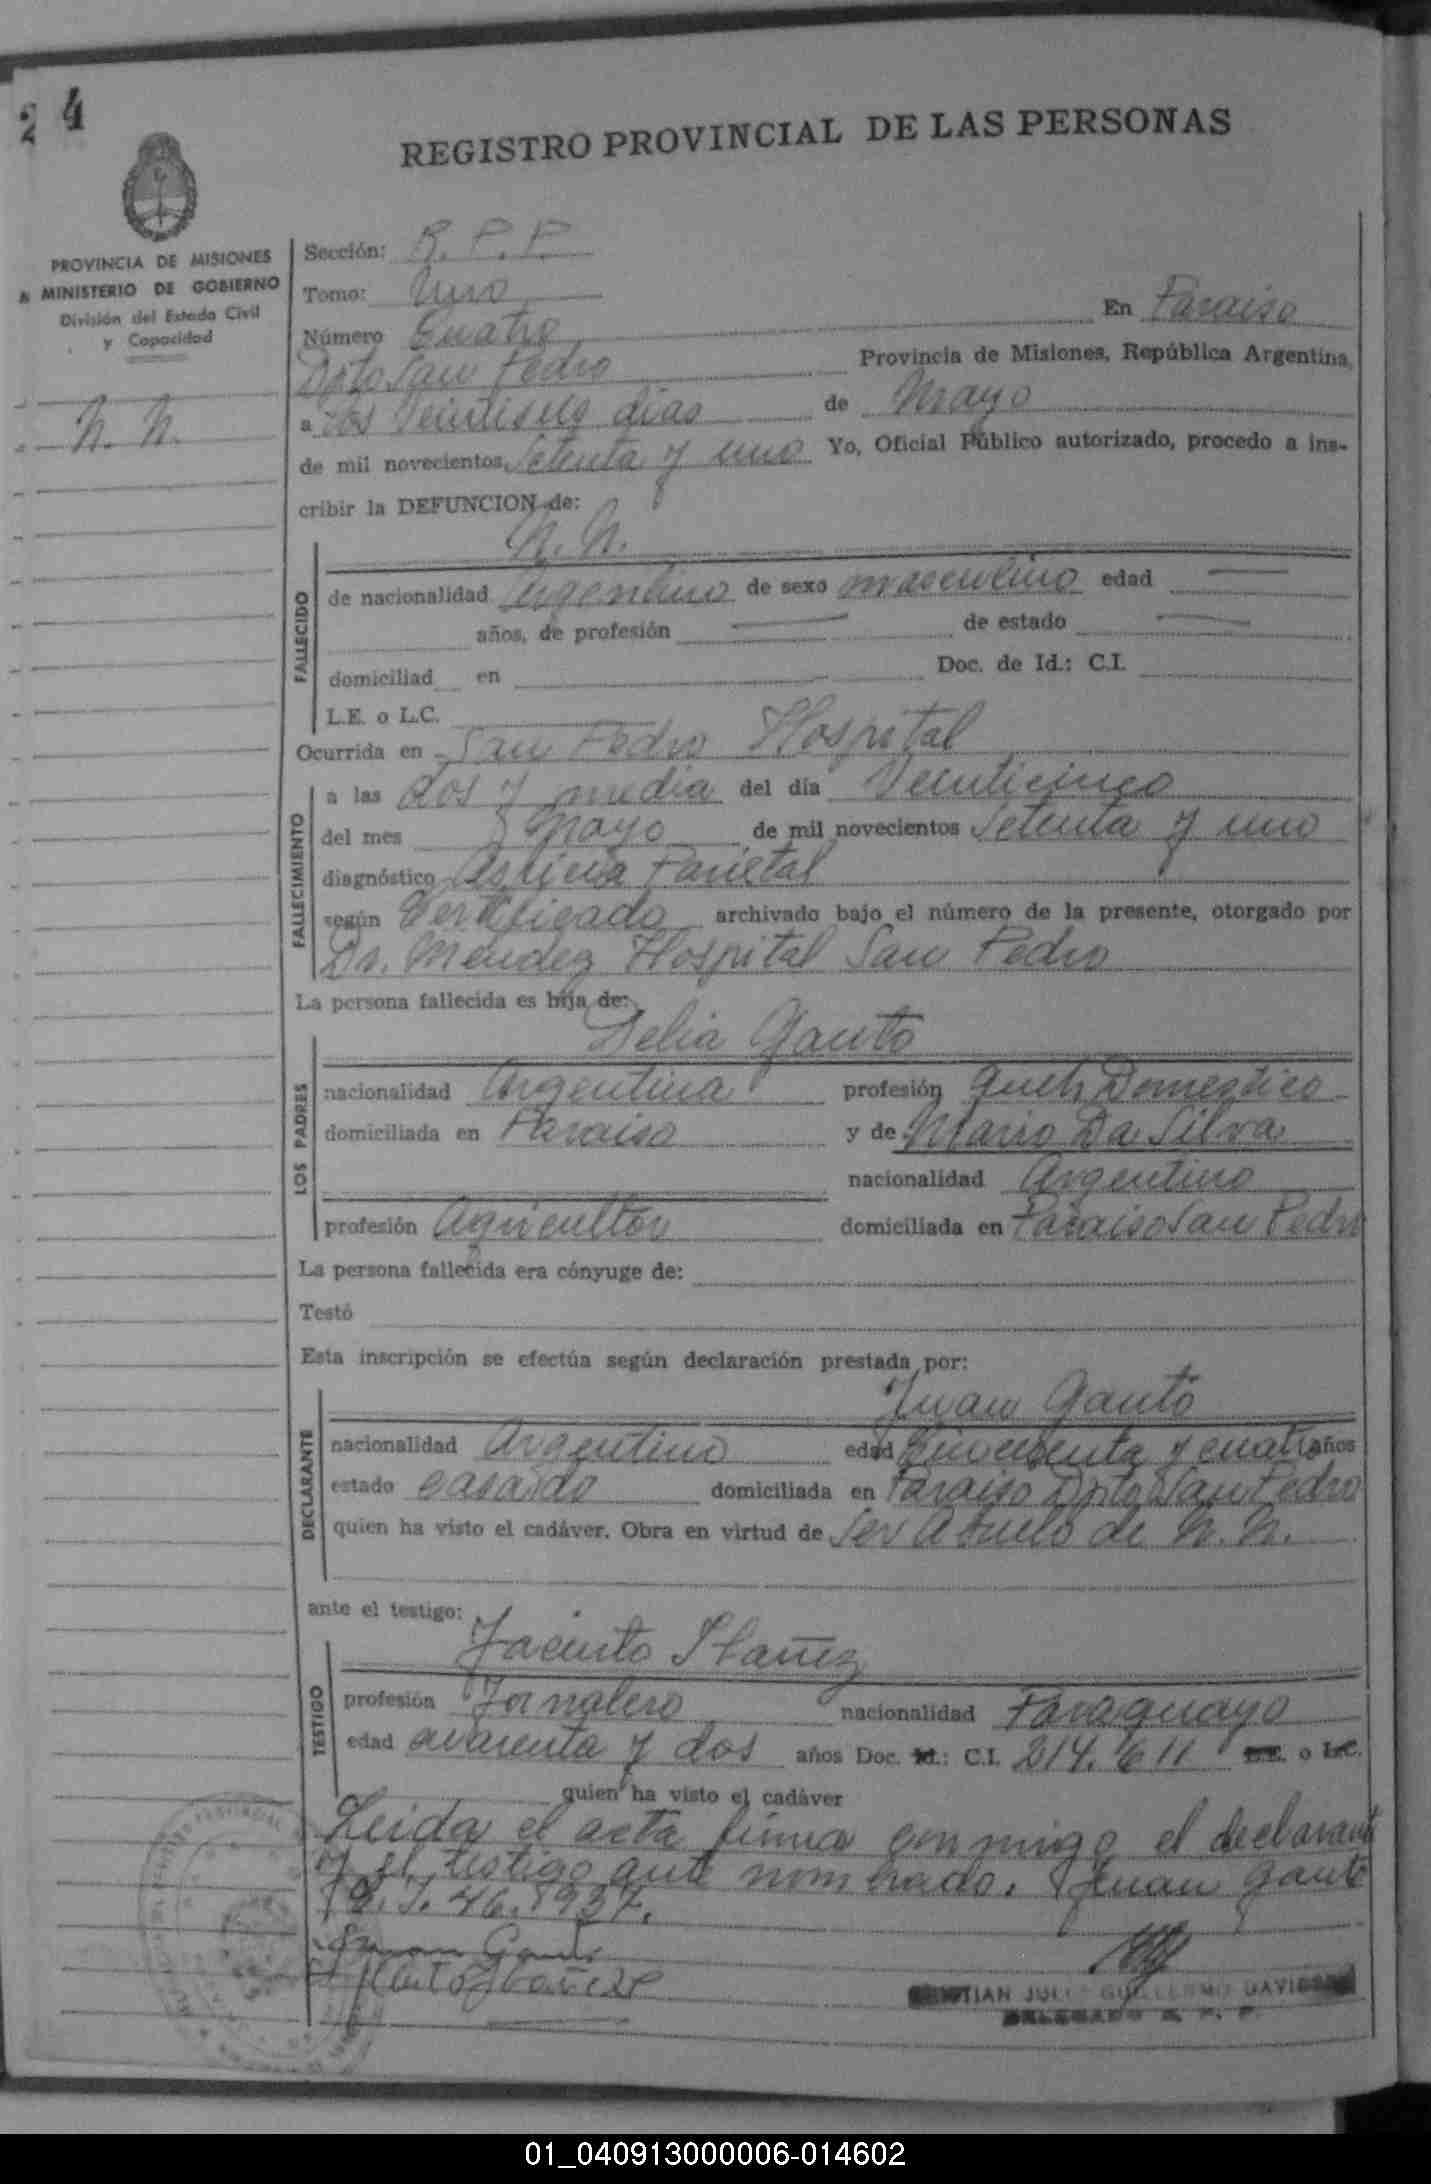 2 4
REGISTRO PROVINCIAL DE LAS PERSONAS
PROVINCIA DE MISIONES
MINISTERIO DE GOBIERNO
División del Estado Civil
y Capacidad
N. N.
Sección: R. P. P.
Tomo: Uno
Número Cuatro En Paraiso
Dpto San Pedro Provincia de Misiones, República Argentina,
a los Veintiseis dias de Mayo
de mil novecientos Setenta y uno Yo, Oficial Público autorizado, procedo a ins-
cribir la DEFUNCION de:
N. N.
FALLECIDO
de nacionalidad Argentino de sexo masculino edad
años, de profesión de estado
domiciliad en Doc. de Id.: C.I.
L.E. o L.C.
Ocurrida en San Pedro Hospital
FALLECIMIENTO
a las dos y media del día Veinticinco
del mes Mayo de mil novecientos Setenta y uno
diagnóstico Parietal
según Certificado archivado bajo el número de la presente, otorgado por
Dr. Mendez Hospital San Pedro
La persona fallecida es hija de:
Delia Gauto
LOS PADRES
nacionalidad Argentina profesión Domestico
domiciliada en Paraiso y de Mario Da Silva
nacionalidad Argentino
profesión Agricultor domiciliada en Paraiso San Pedro
La persona fallecida era cónyuge de:
Testó
Esta inscripción se efectúa según declaración prestada por:
Juan Gauto
DECLARANTE
nacionalidad Argentino edad Cincuenta y cuatro años
estado casado domiciliada en Paraiso Dpto San Pedro
quien ha visto el cadáver. Obra en virtud de Ser Abuelo de N. N.
ante el testigo:
Jacinto Ibañez
TESTIGO
profesión Jornalero nacionalidad Paraguayo
edad cuarenta y dos años Doc. Id.: C.I. 214.611 L.E. o L.C.
quien ha visto el cadáver
Leida el acta firma conmigo el declarant
y el testigo ante nombrado. Juan Gauto
C. I. 46.937.
Juan Gauto
Ibañez
CRISTIAN JULIO GUILLERMO DAVIDSON
DELEGADO R. P. P.
01_040913000006-014602